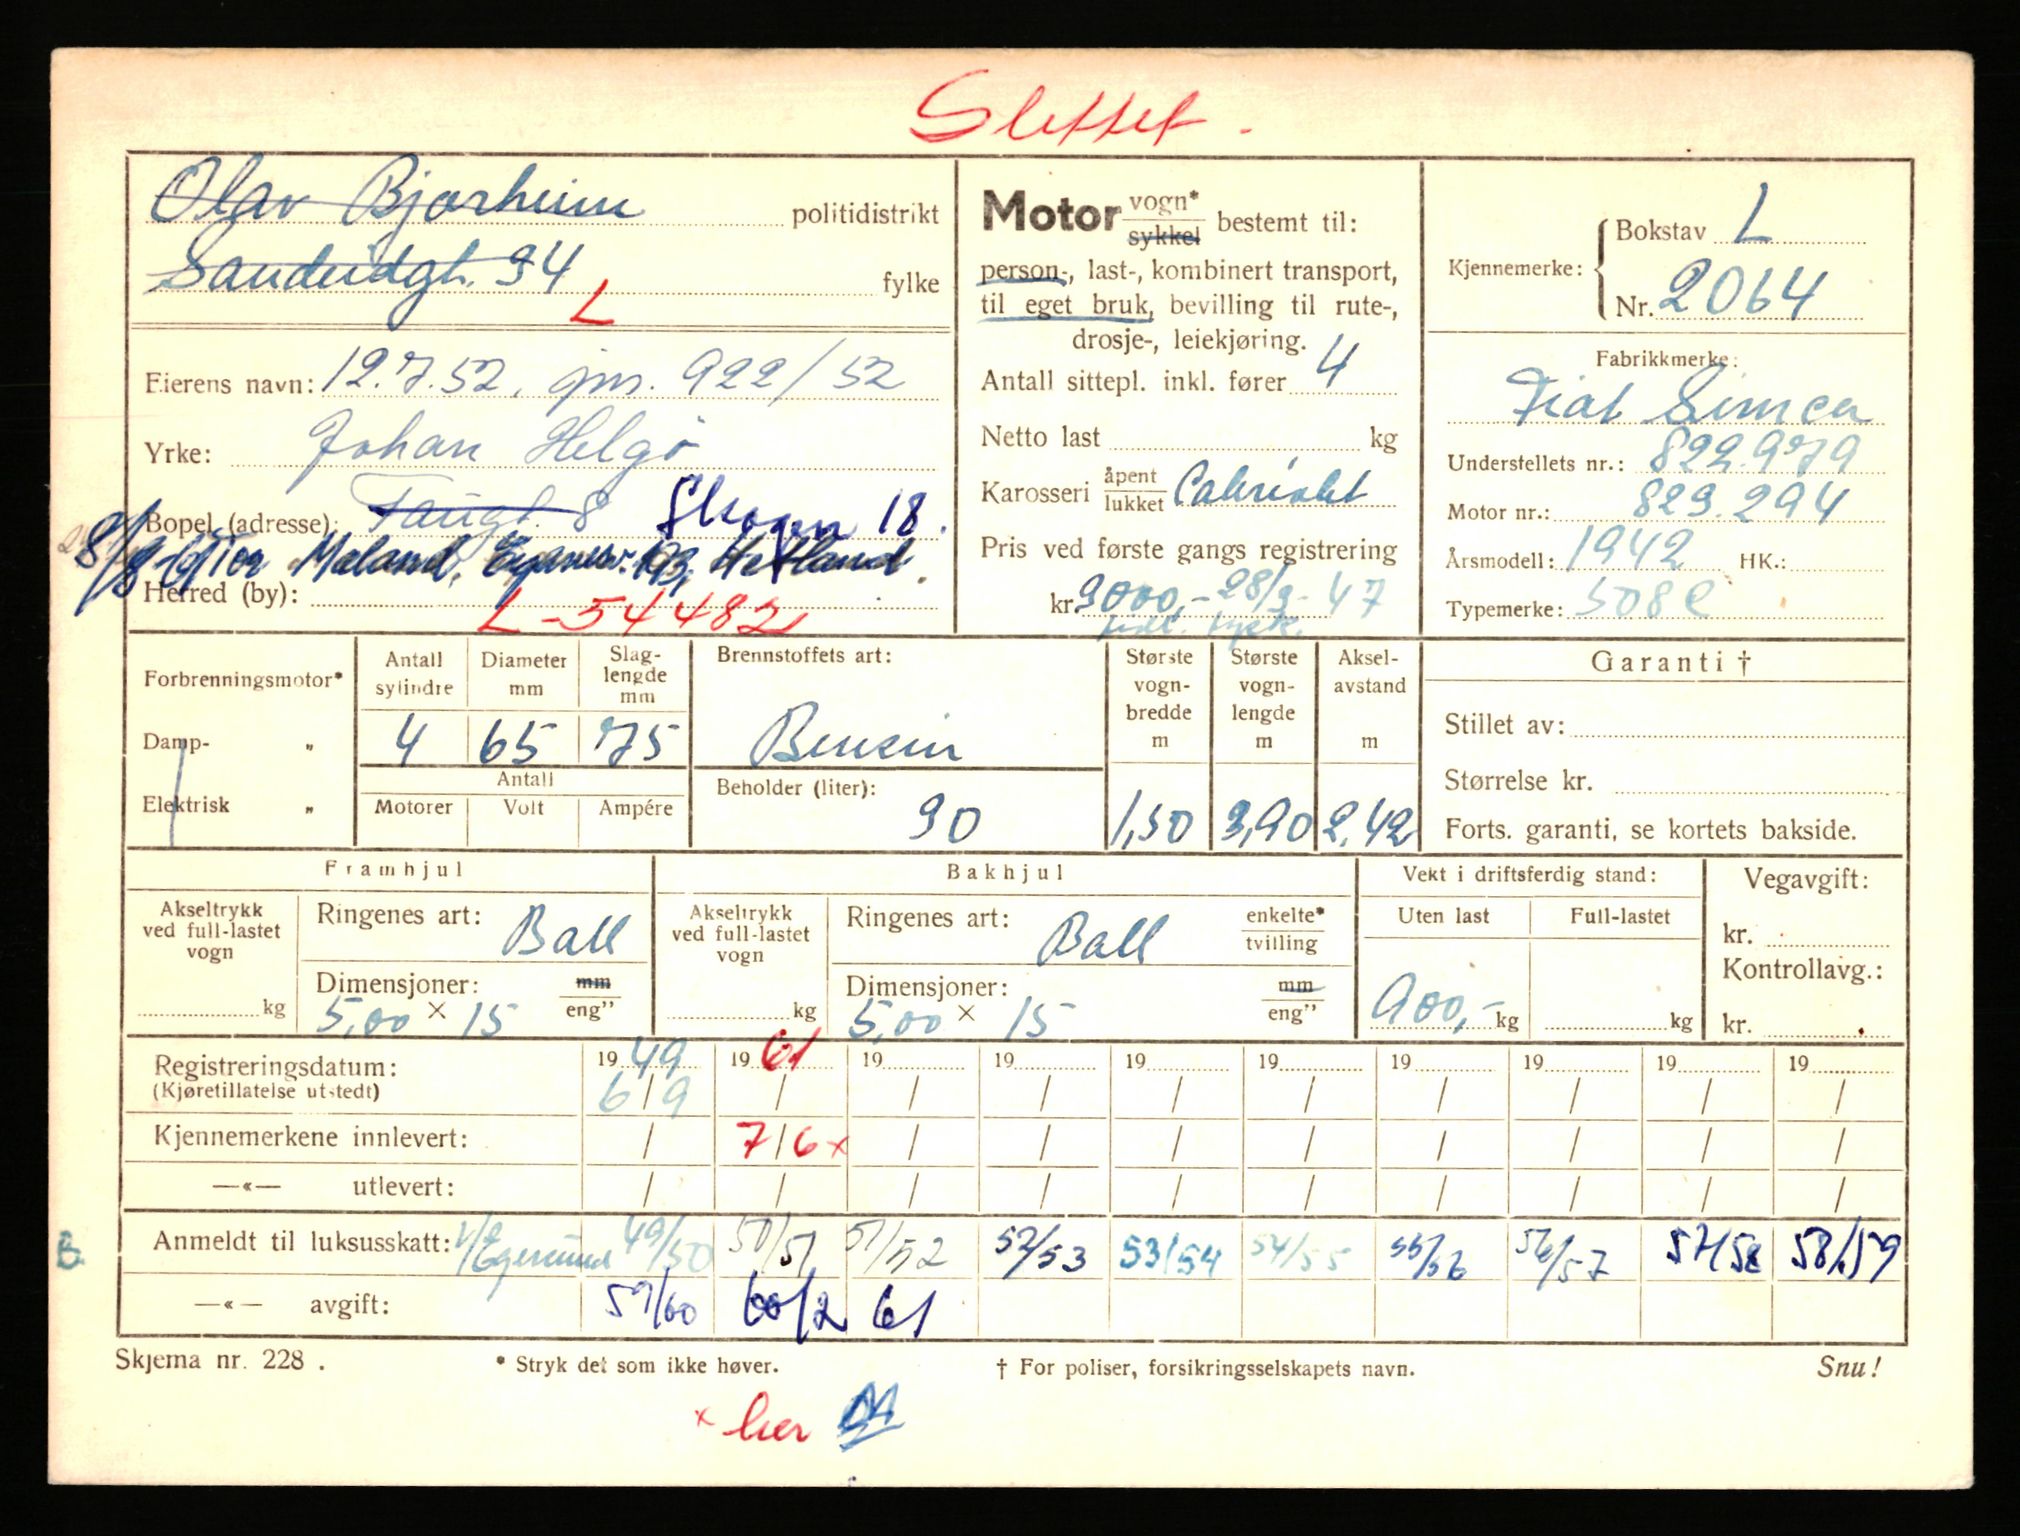 Slettet -
Olav Bjorheim politidistrikt
94 fylke
L
Eierens navn: 12.7.52, jnr. 922/52
Yrke: Johan Helgø
Bopel (adresse): 8 Skagen 18.
Tor Maland, Hetland.
Herred (by):
L-54482
Motor vogn* sykkel bestemt til:
person-, last-, kombinert transport,
til eget bruk, bevilling til rute-,
drosje-, leiekjøring.
Antall sittepl. inkl. fører 4
Netto last kg
Karosseri åpent lukket Cabriolet
Pris ved første gangs registrering
kr. 9000,- 28/9-47
Kjennemerke: Bokstav L
Nr. 2064
Fabrikkmerke:
Fiat Simca
Understellets nr.: 822.979
Motor nr.: 823.294
Årsmodell: 1942 HK.:
Typemerke: 508C
Forbrenningsmotor*
Damp- „
Elektrisk „
Antall sylindre Diameter mm Slaglengde mm
4 65 75
Antall
Motorer Volt Ampére
Brennstoffets art:
Bensin
Beholder (liter):
30
Største vogn-bredde m Største vogn-lengde m Aksel-avstand m
1,50 3,90 2,42
Garanti †
Stillet av:
Størrelse kr.
Forts. garanti, se kortets bakside.
Framhjul
Akseltrykk ved full-lastet vogn kg
Ringenes art: Ball
Dimensjoner: mm eng”
5,00 × 15
Bakhjul
Akseltrykk ved full-lastet vogn kg
Ringenes art: Ball enkelte* tvilling
Dimensjoner: mm eng”
5,00 × 15
Vekt i driftsferdig stand:
Uten last Full-lastet
900,- kg kg
Vegavgift:
kr.
Kontrollavg.:
kr.
Registreringsdatum: 1949 1961 19 19 19 19 19 19 19 19
(Kjøretillatelse utstedt) 6/9 / / / / / / / / /
Kjennemerkene innlevert: / 7/6 x / / / / / / / /
—«— utlevert: / / / / / / / / / /
B.
Anmeldt til luksusskatt: Egersund 49/50 50/51 51/52 52/53 53/54 54/55 55/56 56/57 57/58 58/59
—«— avgift: 59/60 60/2 61
Skjema nr. 228 . * Stryk det som ikke høver. † For poliser, forsikringsselskapets navn. Snu!
x her